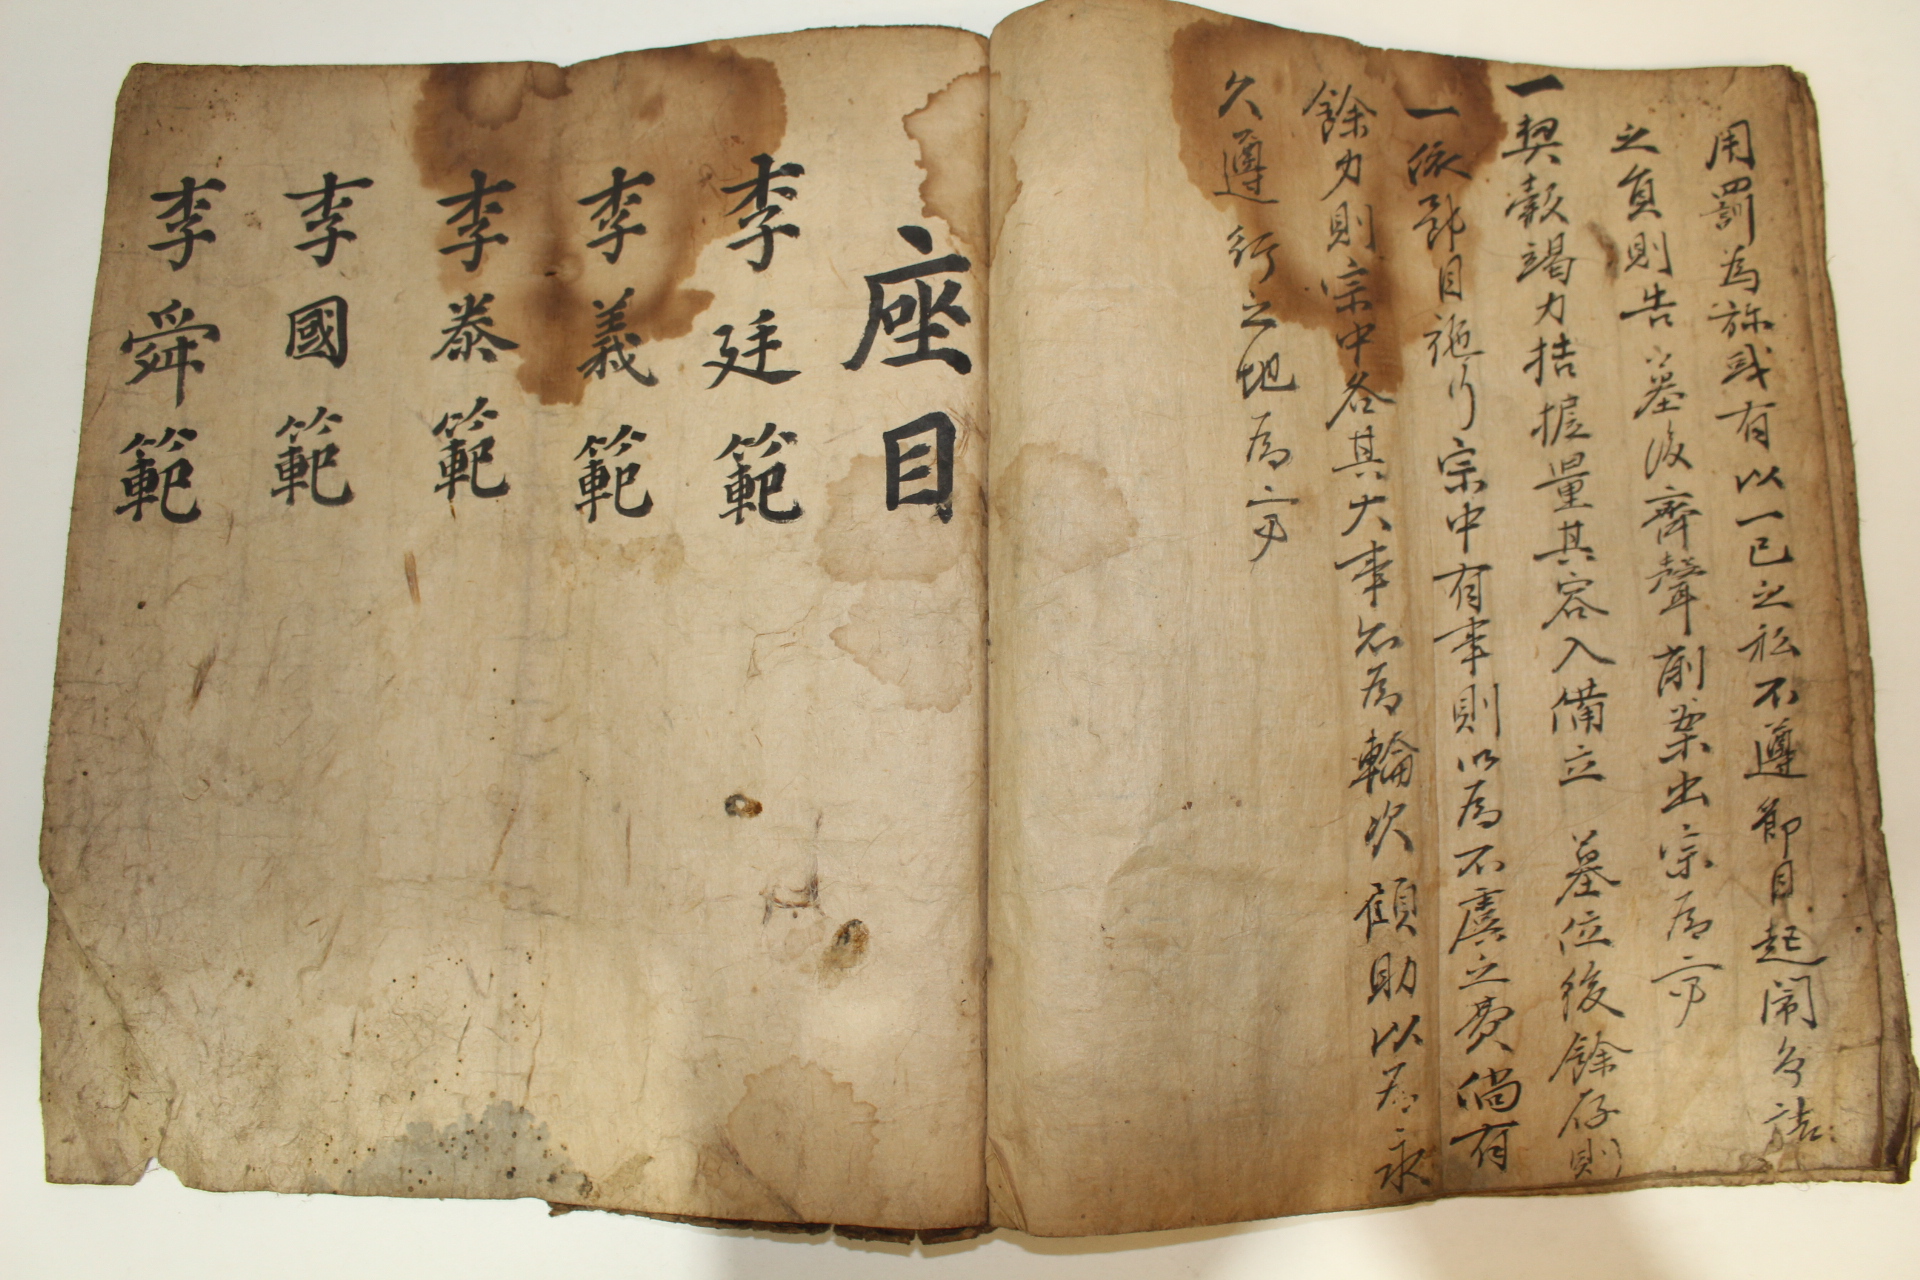 用罰爲旀或有以一己之私不遵節目起鬧爻詰
之負則告 墓後齊聲削案出宗爲齊
一契穀竭力拮据量其容入備立 墓位後餘存則
一依節目施行宗中有事則以爲不虞之費倘有
餘力則宗中各其大事以爲輪次顧助以爲永
久遵行之地爲齊
座目
李廷範
李義範
李泰範
李國範
李舜範